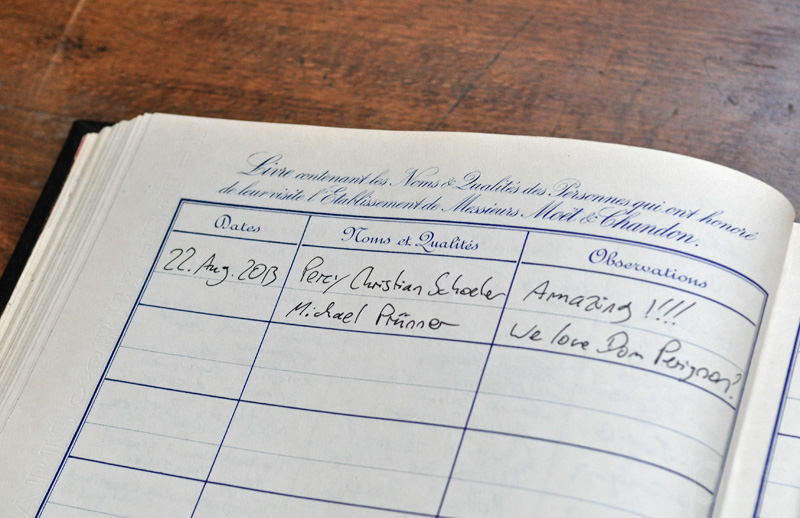 Livre contenant les Noms & Qualités des Personnes qui ont honoré
de leur visite l'Etablissement de Messieurs Moët & Chandon.
Dates
Noms et Qualités
Observations
22. Aug. 2013
Percy Christian Schoeler
Amazing !!!!
Michael Prünner
We love Dom Perignon!